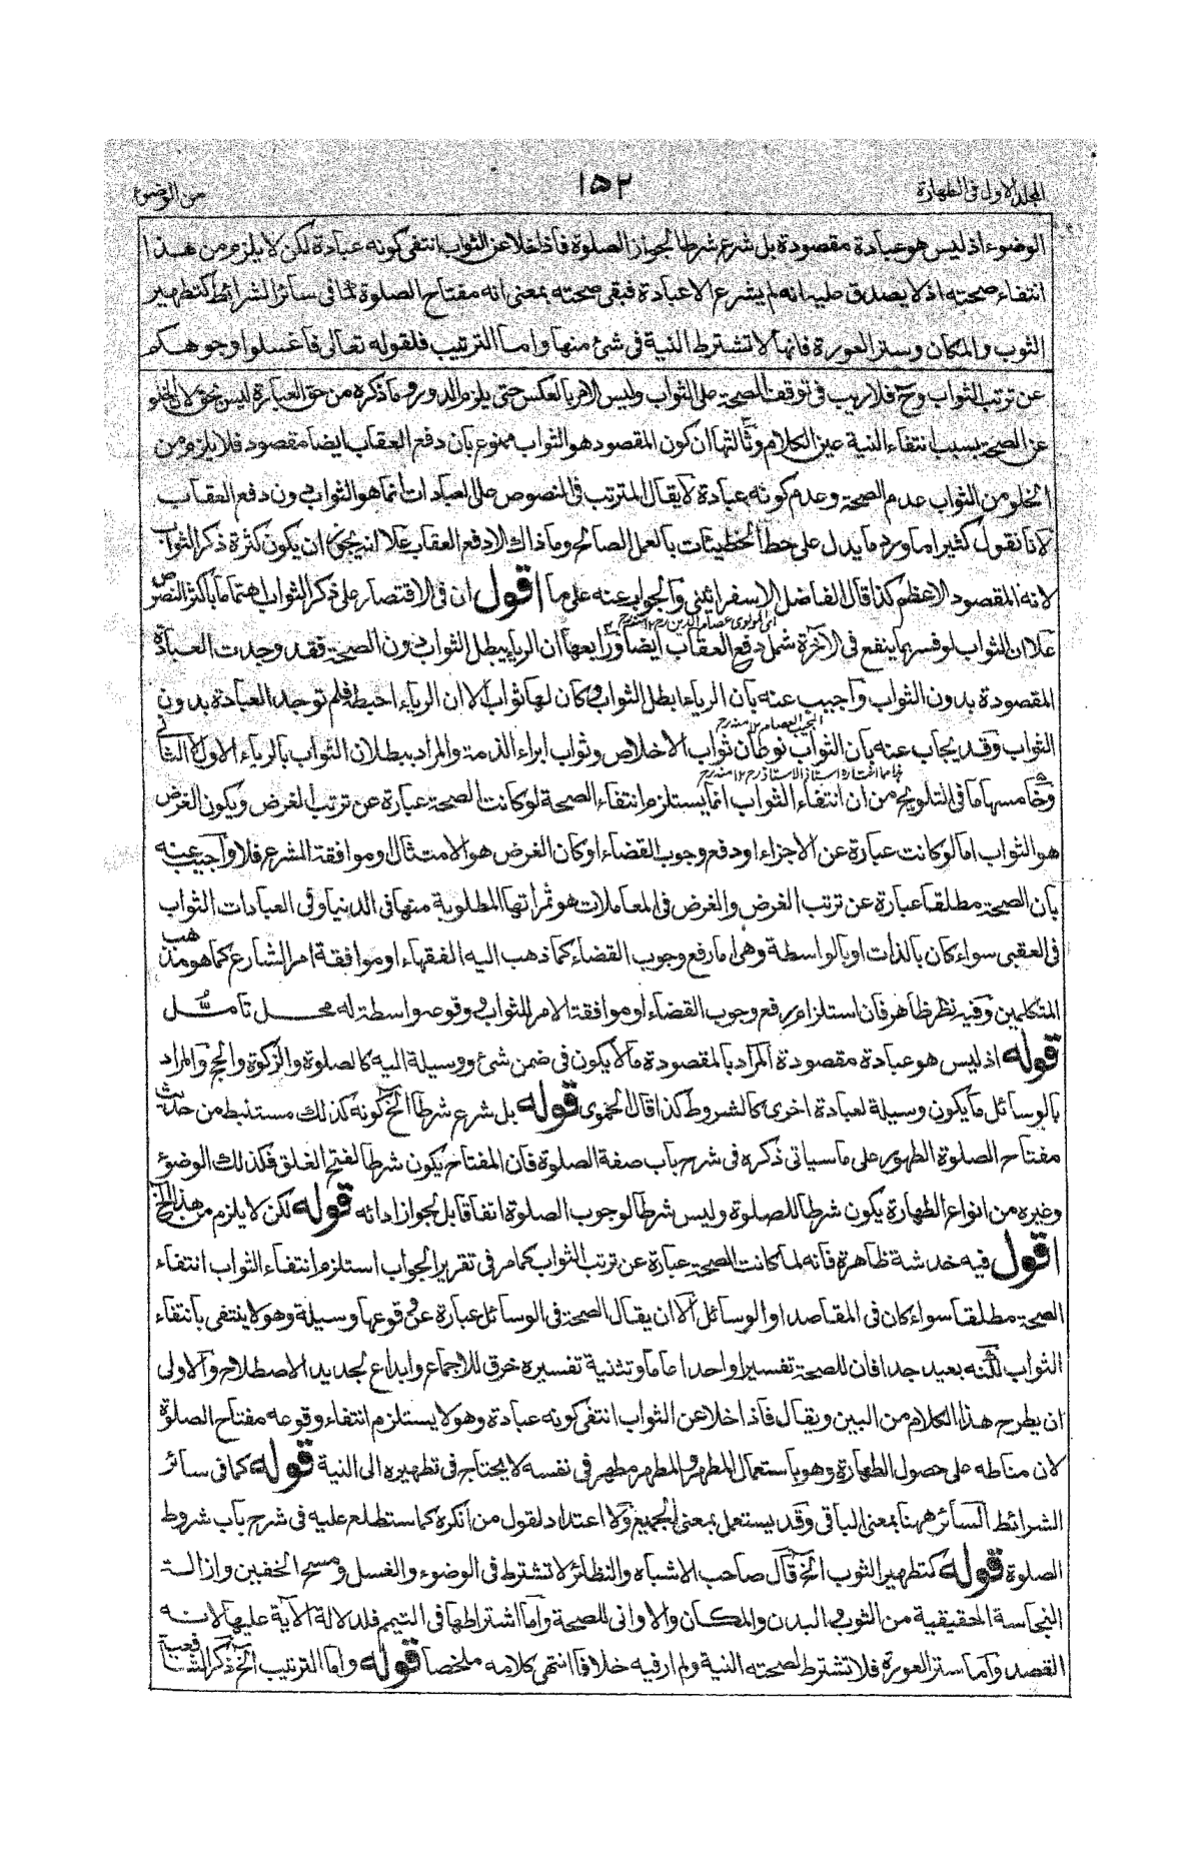 المجلد الاول فى الطهارة
١٥٢
من الوضوء
الوضوء اذ ليس هو عبادة مقصودة بل شرع شرطا لجواز الصلوة فاذا خلا عن الثواب انتفى كونه عبادة لكن لا يلزم من هذا
انتفاء صحته اذ لا يصدق عليه انه لم يشرع الا عبادة فبقى صحته بمعنى انه مفتاح الصلوة كما فى سائر الشرائط كتطهير
الثوب والمكان وستر العورة فانها لا تشترط النية فى شئ منها واما الترتيب فلقوله تعالى فاغسلوا وجوهكم
عن ترتب الثواب وح فلا ريب فى توقف الصحة على الثواب وليس الامر بالعكس حتى يلزم الدور وما ذكره من حق العبارة ليس بحق لان الخلو
عن الصحة بسبب انتفاء النية عين الكلام وثالثها ان كون المقصود هو الثواب ممنوع بان دفع العقاب ايضا مقصود فلا يلزم من
الخلو من الثواب عدم الصحة وعدم كونه عبادة لا يقال المترتب فى النصوص على العبادات انما هو الثواب دون دفع العقاب
لانا نقول كثيرا ما ورد ما يدل على حط الخطيئات بالعمل الصالح وما ذاك الا دفع العقاب علا انه يجوز ان يكون كثرة ذكر الثواب
لانه المقصود الاعظم كذا قال الفاضل الاسفرائينى والجواب عنه على ما اقول ان فى الاقتصار على ذكر الثواب اهتماما باكثر النصوص
اى المولوى عصام الدين رح ١٢ منه رح
علا ان الثواب لو فسر بما ينفع فى الآخرة شمل دفع العقاب ايضا ورابعها ان الرياء يبطل الثواب دون الصحة فقد وجدت العبادة
المقصودة بدون الثواب واجيب عنه بان الرياء ابطل الثواب وكان لها ثواب الا ان الرياء احبطه فلم توجد العبادة بدون
المجيب العصام ١٢ منه رح
الثواب وقد يجاب عنه بان الثواب نوعان ثواب الاخلاص وثواب ابراء الذمة والمراد ببطلان الثواب بالرياء الاول لا الثانى
استاذ الاستاذ رح ١٢ منه رح
وخامسها ما فى التلويح من ان انتفاء الثواب انما يستلزم انتفاء الصحة لو كانت الصحة عبارة عن ترتب الغرض ويكون الغرض
هو الثواب اما لو كانت عبارة عن الاجزاء او دفع وجوب القضاء او كان الغرض هو الامتثال وموافقة الشرع فلا واجيب عنه
بان الصحة مطلقا عبارة عن ترتب الغرض والغرض فى المعاملات هو ثمراتها المطلوبة منها فى الدنيا وفى العبادات الثواب
فى العقبى سواء كان بالذات او بالواسطة وهى اما رفع وجوب القضاء كما ذهب اليه الفقهاء او موافقة امر الشارع كما هو مذهب
المتكلمين وفيه نظر ظاهر فان استلزام رفع وجوب القضاء او موافقة الامر للثواب ووقوعه واسطة له محل تامل
قوله اذ ليس هو عبادة مقصودة المراد بالمقصودة ما لا يكون فى ضمن شئ ووسيلة اليه كالصلوة والزكوة والحج والمراد
بالوسائل ما يكون وسيلة لعبادة اخرى كالشروط كذا قال الحموى قوله بل شرع شرطا الخ كونه كذلك مستنبط من حديث
مفتاح الصلوة الطهور على ما سياتى ذكره فى شرح باب صفة الصلوة فان المفتاح يكون شرطا لفتح الغلق فكذلك الوضوء
وغيره من انواع الطهارة يكون شرطا للصلوة وليس شرطا لوجوب الصلوة اتفاقا بل لجواز ادائه قوله لكن لا يلزم من هذا الخ
اقول فيه خدشة ظاهرة فانه لما كانت الصحة عبارة عن ترتب الثواب كما مر فى تقرير الجواب استلزم انتفاء الثواب انتفاء
الصحة مطلقا سواء كان فى المقاصد او الوسائل الا ان يقال الصحة فى الوسائل عبارة عن وقوعها وسيلة وهو لا ينتفى بانتفاء
الثواب لكنه بعيد جدا فان للصحة تفسيرا واحدا عاما وتثنية تفسيره خرق للاجماع وابداع لجديد الاصطلاح والاولى
ان يطرح هذا الكلام من البين ويقال فاذا خلا عن الثواب انتفى كونه عبادة وهو لا يستلزم انتفاء وقوعه مفتاح الصلوة
لان مناطه على حصول الطهارة وهو باستعمال المطهر والمطهر مطهر فى نفسه لا يحتاج فى تطهيره الى النية قوله كما فى سائر
الشرائط السائر ههنا بمعنى الباقى وقد يستعمل بمعنى الجميع ولا اعتداد لقول من انكره كما ستطلع عليه فى شرح باب شروط
الصلوة قوله كتطهير الثوب الخ قال صاحب الاشباه والنظائر لا تشترط فى الوضوء والغسل ومسح الخفين وازالة
النجاسة الحقيقية من الثوب والبدن والمكان والاوانى للصحة واما اشتراطها فى التيمم فلدلالة الآية عليها لانه
القصد واما ستر العورة فلا تشترط لصحته النية ولم ار فيه خلافا انتهى كلامه ملخصا قوله واما الترتيب الخ ذكر الشافعية